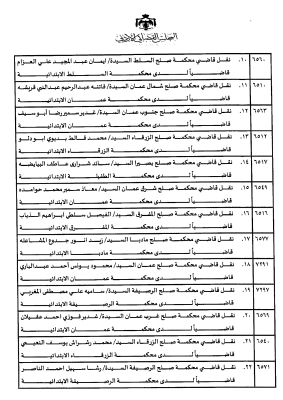 المجلس القضائي الأردني
٦٥٦٠ ١٠. نقل قاضي محكمة صلح السلط السيدة/ ايمان عبد المجيد علي العزام
قاضياً لدى محكمة السلط الابتدائية
٦٥١٠ ١١. نقل قاضي محكمة صلح شمال عمان السيدة/ فاتنه عبدالرحيم عبدالنبي قريشه
قاضياً لدى محكمة عمان الابتدائية
٦٥٦٣ ١٢. نقل قاضي محكمة صلح جنوب عمان السيدة/ غدير سمير رضا ابو سيف
قاضياً لدى محكمة عمان الابتدائية
٦٥١٢ ١٣. نقل قاضي محكمة صلح الزرقاء السيد/ محمد قالط بديوي ابو دلو
قاضياً لدى محكمة الزرقاء الابتدائية
٦٥١٧ ١٤. نقل قاضي محكمة صلح بصيرا السيد/ سائد شراري عاطف البيايضه
قاضياً لدى محكمة الطفيلة الابتدائية
٦٥٤٩ ١٥. نقل قاضي محكمة صلح شرق عمان السيد/ معاذ سمير محمد حوامده
قاضياً لدى محكمة عمان الابتدائية
٦٥١٦ ١٦. نقل قاضي محكمة صلح المفرق السيد/ الفيصل سطي ابراهيم الذياب
قاضياً لدى محكمة المفرق الابتدائية
٦٥٧٧ ١٧. نقل قاضي محكمة صلح مادبا السيد/ زيد انور جدوع المشاعله
قاضياً لدى محكمة مادبا الابتدائية
٧٢٩١ ١٨. نقل قاضي محكمة صلح عمان السيد/ محمود يونس أحمد عبدالباري
قاضياً لدى محكمة عمان الابتدائية
٧٢٩٧ ١٩. نقل قاضي محكمة صلح الرصيفة السيدة/ ساميه علي مصطفى المغربي
قاضياً لدى محكمة الرصيفة الابتدائية
٦٥٦٩ ٢٠. نقل قاضي محكمة صلح غرب عمان السيدة/ غدير فوزي احمد عقيلان
قاضياً لدى محكمة عمان الابتدائية
٦٥٤٠ ٢١. نقل قاضي محكمة صلح الزرقاء السيد/ محمد رشراش يوسف النعيمي
قاضياً لدى محكمة الزرقاء الابتدائية
٦٥٧١ ٢٢. نقل قاضي محكمة صلح الرصيفة السيدة/ رشا سبيل احمد الناصر
قاضياً لدى محكمة الرصيفة الابتدائية